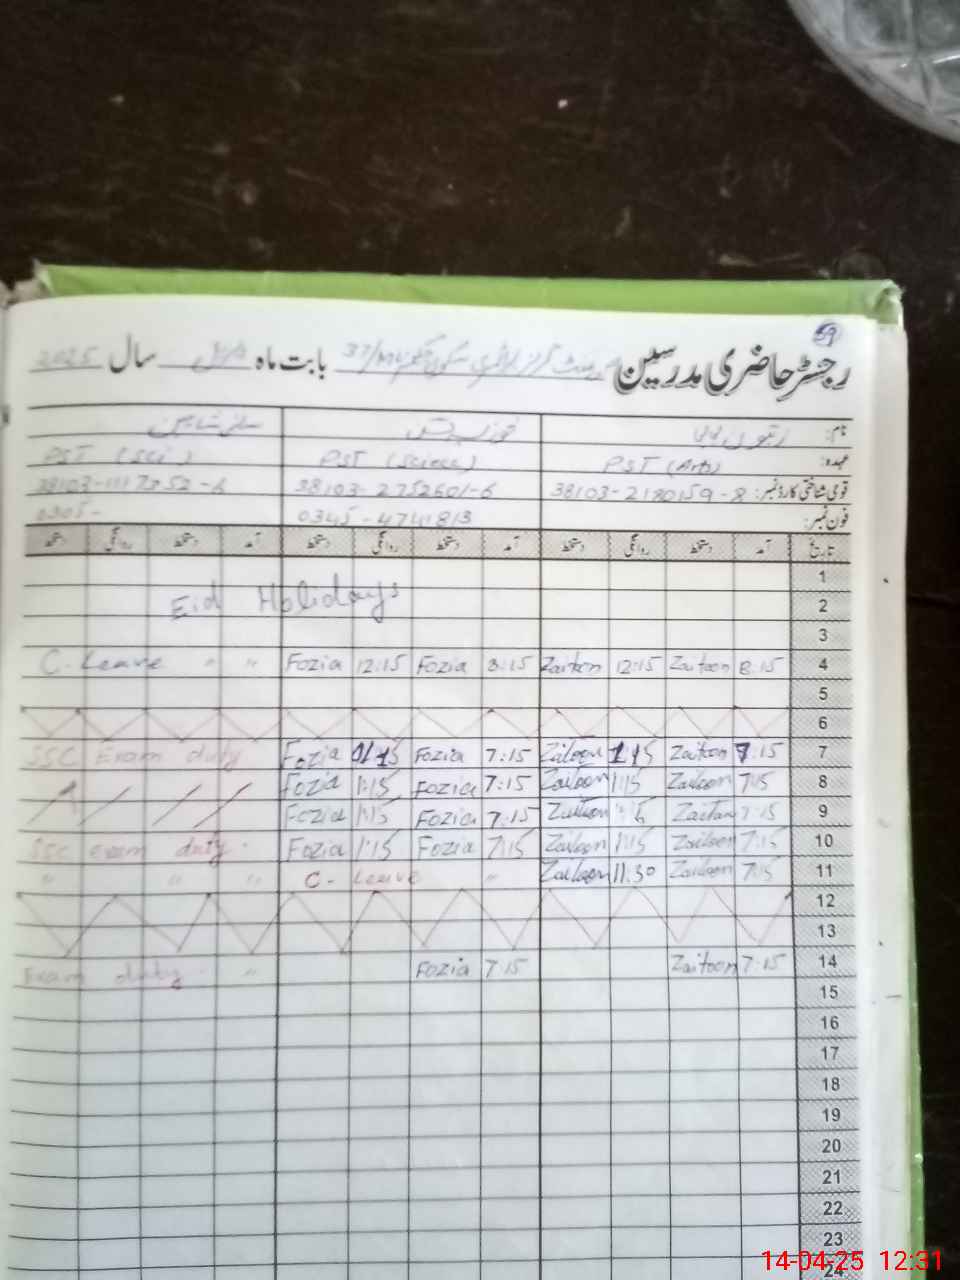 59
رجسٹر حاضری مدرسین گورنمنٹ گرلز پرائمری سکول 37/ML بابت ماہ اپریل سال 2025
نام:
عہدہ: PST (Arts) PST (Science) PST (Sci)
قومی شناختی کارڈ نمبر: 38103-2180159-8 38103-2752601-6 38103-1117352-6
فون نمبر: 0345-4741813 0305-
تاریخ آمد دستخط روانگی دستخط آمد دستخط روانگی دستخط آمد دستخط روانگی دستخط
1
Eid Holidays 2
3
C. Leave " " Fozia 12:15 Fozia 8:15 Zaitoon 12:15 Zaitoon 8:15 4
5
6
SSC Exam duty Fozia 1:15 Fozia 7:15 Zaitoon 1:15 Zaitoon 7:15 7
Fozia 1:15 Fozia 7:15 Zaitoon 1:15 Zaitoon 7:15 8
Fozia 1:15 Fozia 7:15 Zaitoon Zaitoon 7:15 9
SSC exam duty. Fozia 1:15 Fozia 7:15 Zaitoon 1:15 Zaitoon 7:15 10
" " " C- Leave " Zaitoon 11:30 Zaitoon 7:15 11
12
13
Exam duty. " Fozia 7:15 Zaitoon 7:15 14
15
16
17
18
19
20
21
22
23
24
14-04-25 12:31